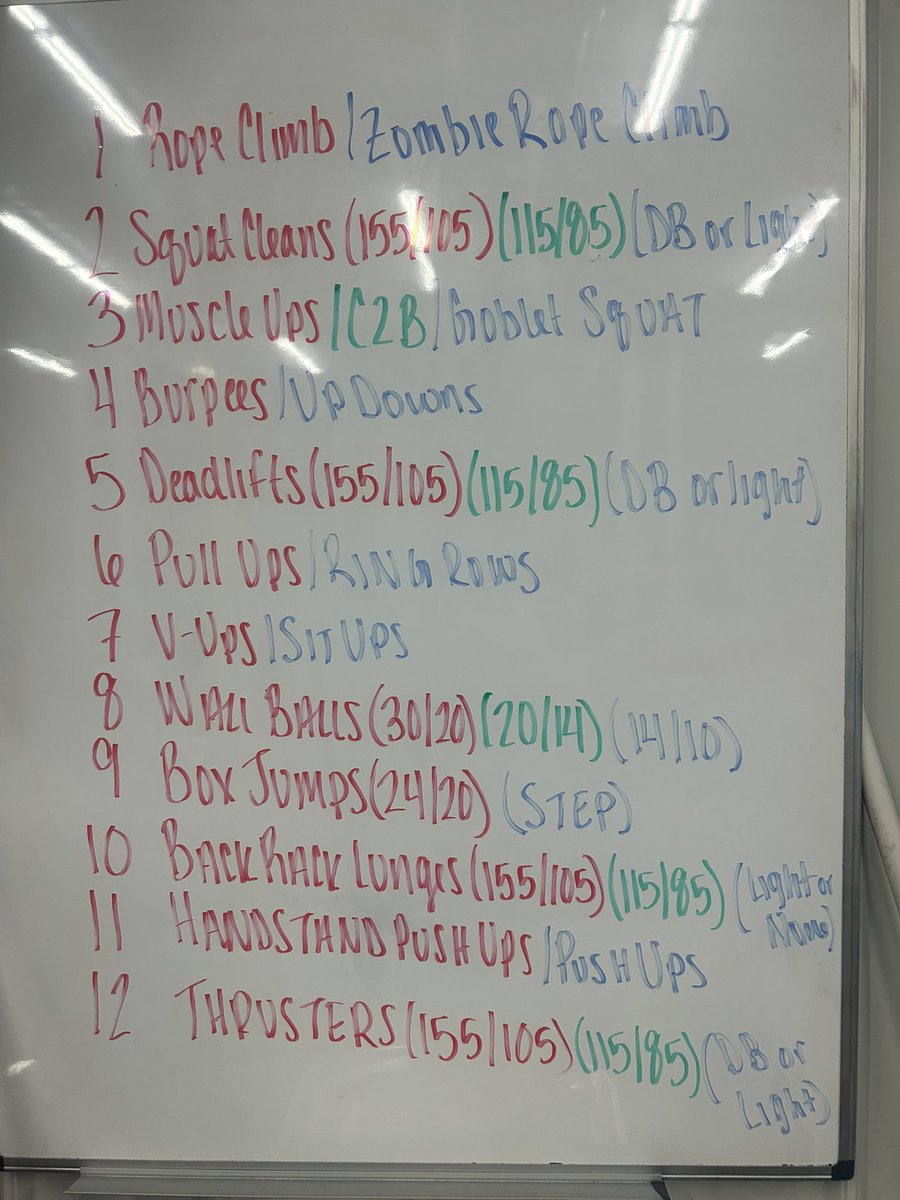 1 Rope Climb/Zombie Rope Climb
2 Squat Cleans (155/105) (115/85) (DB or Light)
3 Muscle Ups/C2B/Goblet SQUAT
4 Burpees/Up Downs
5 Deadlifts (155/105) (115/85) (DB or light)
6 Pull Ups/RING ROWS
7 V-Ups/SIT UPS
8 WALL BALLS (30/20) (20/14) (14/10)
9 BOX JUMPS (24/20) (STEP)
10 BACK RACK Lunges (155/105) (115/85) (Light or
None)
11 HANDSTAND PUSH UPS/PUSH UPS
12 THRUSTERS (155/105) (115/85) (DB or
Light)